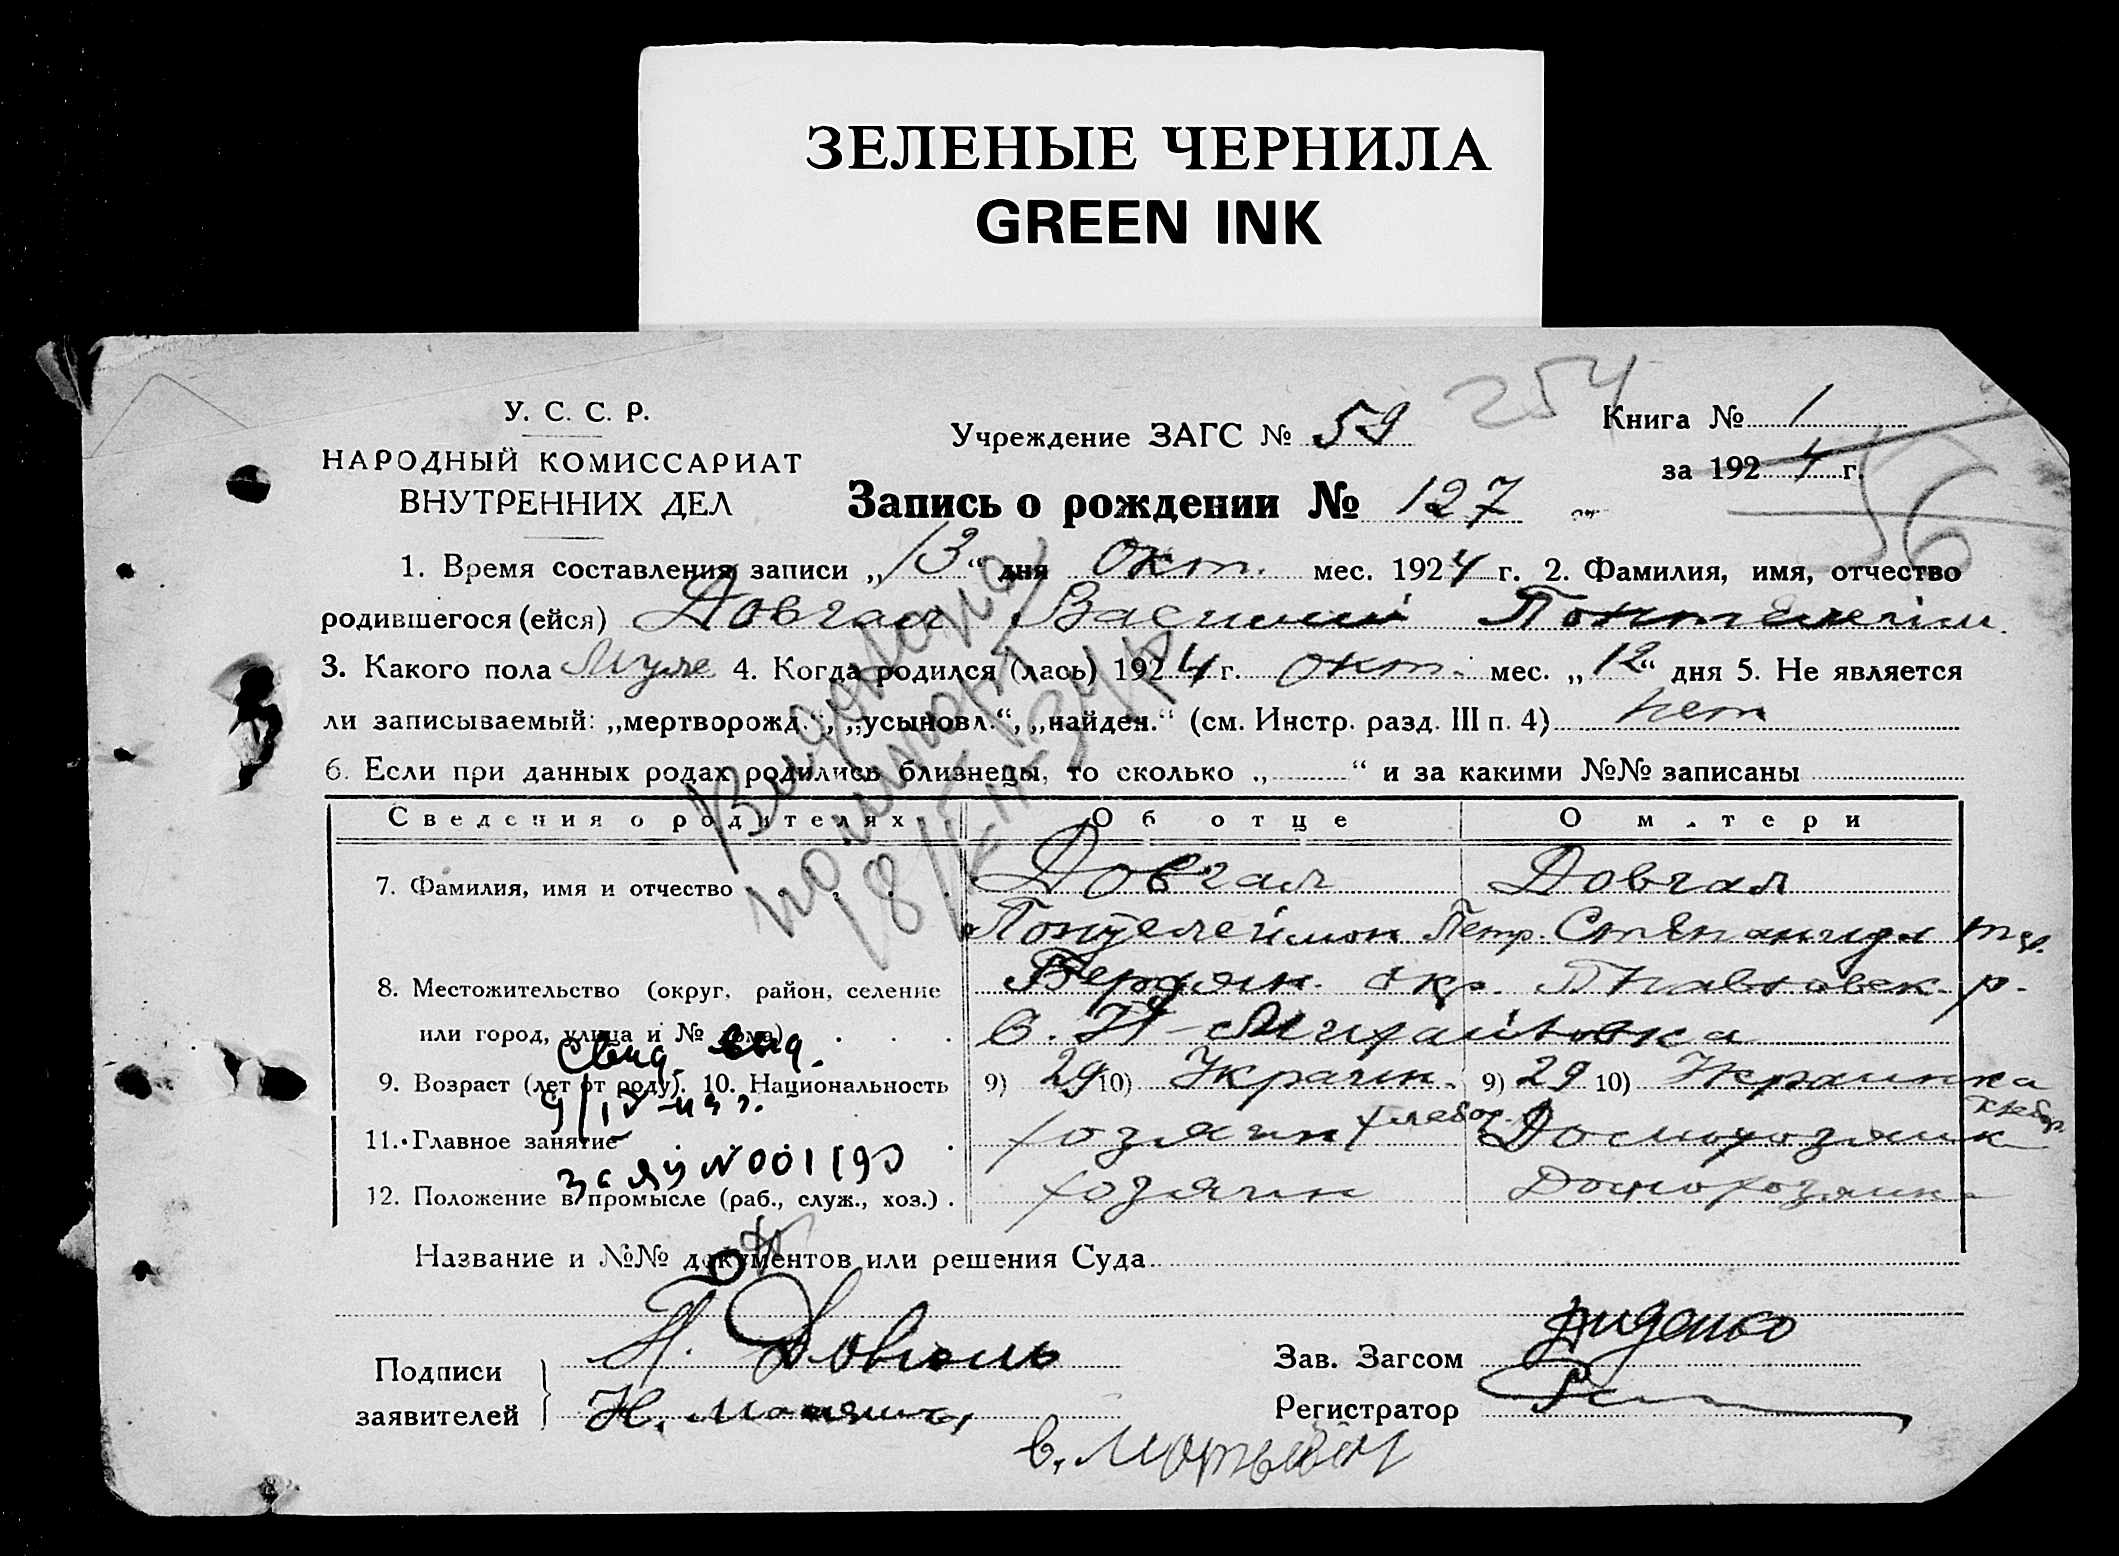 ЗЕЛЕНЫЕ ЧЕРНИЛА
GREEN INK
У. С. С. Р.
НАРОДНЫЙ КОМИССАРИАТ
ВНУТРЕННИХ ДЕЛ
Учреждение ЗАГС № 59
254
Книга № 1
за 1924 г.
56
Запись о рождении № 127
1. Время составления записи „13“ дня окт. мес. 1924 г. 2. Фамилия, имя, отчество
родившегося (ейся) Довгал Василий
3. Какого пола Муж 4. Когда родился (лась) 1924 г. окт. мес. „12“ дня 5. Не является
ли записываемый: „мертворожд.“, „усыновл.“, „найден.“ (см. Инстр. разд. III п. 4) нет
6. Если при данных родах родились близнецы, то сколько „ “ и за какими №№ записаны
Сведения о родителях Об отце О матери
7. Фамилия, имя и отчество Довгал Довгал
Петр.
8. Местожительство (округ, район, селение Бердян. окр. р.
или город, улица и № дома) с. Н-Михайловка
свид.
9. Возраст (лет от роду). 10. Национальность 9) 29 10) Украин. 9) 29 10) Украинка
11. Главное занятие хозяин хлебор. Домохозяйк
12. Положение в промысле (раб., служ., хоз.) хозяин Домохозяйк
Название и №№ документов или решения Суда
Подписи заявителей
П. Довгаль
Н.
Зав. Загсом Диденко
Регистратор